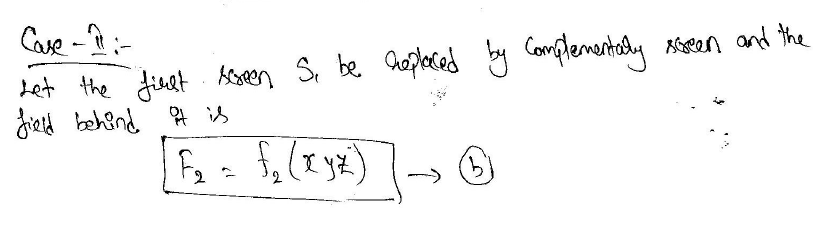 Case - II :-
Let the first screen S₁ be replaced by Complementary screen and the
field behind it is
F₂ = f₂(xyz) → (b)